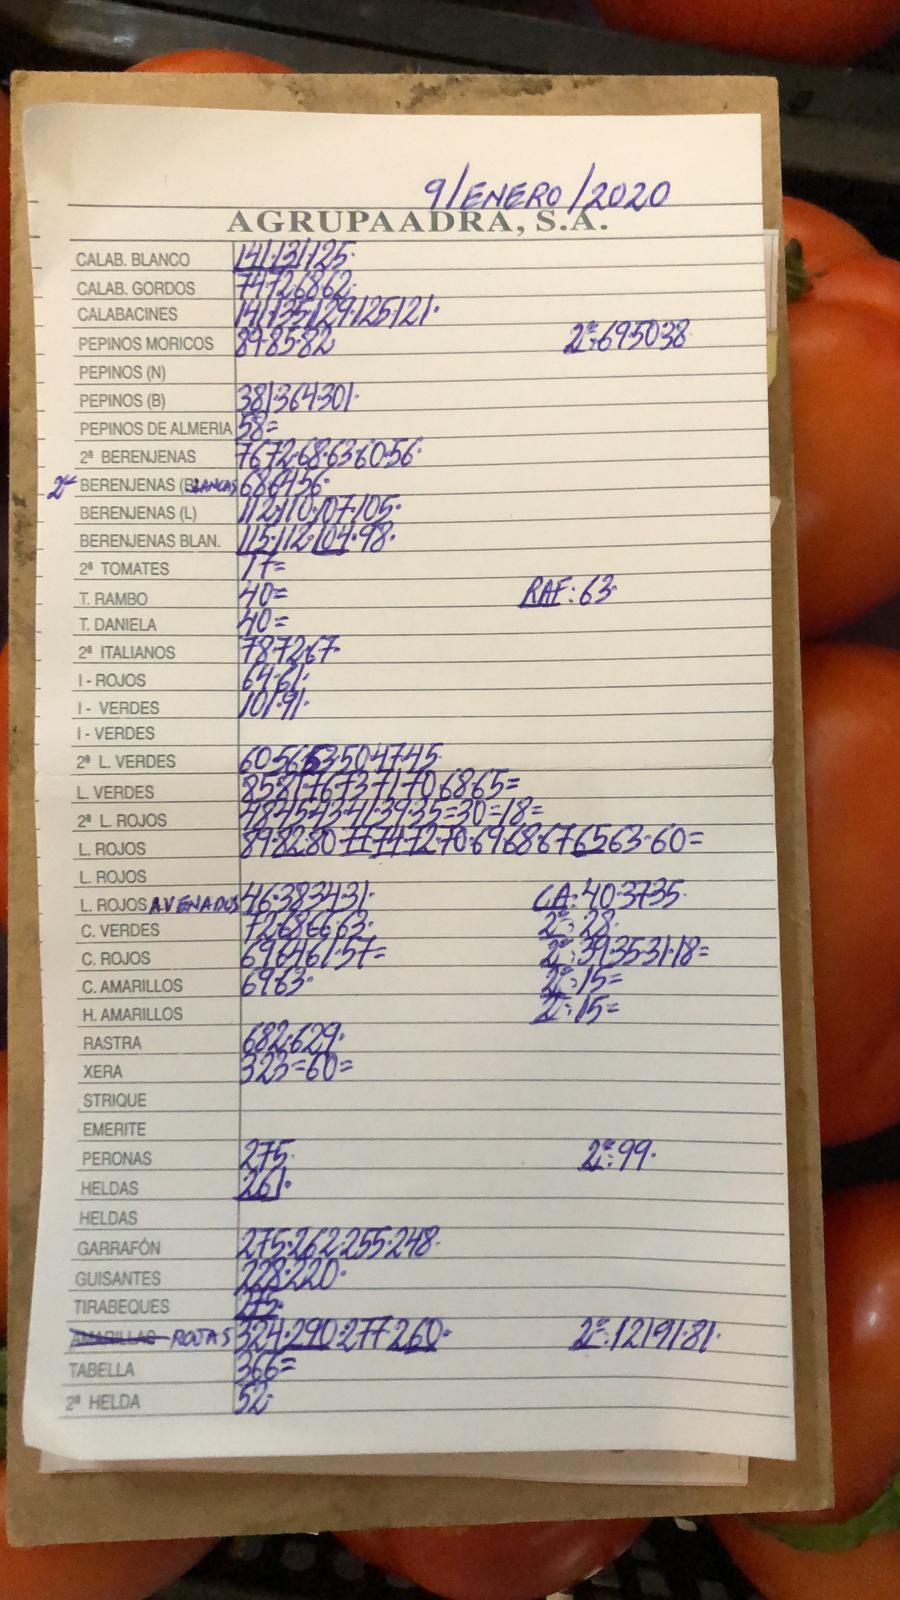 9/ENERO/2020
AGRUPAADRA, S.A.
CALAB. BLANCO 141·131·125·
CALAB. GORDOS 74·72·68·62·
CALABACINES 141·135·129·125·121·
PEPINOS MORICOS 89·85·82 2ª:69·50·38·
PEPINOS (N)
PEPINOS (B) 381·364·301·
PEPINOS DE ALMERIA 58=
2ª BERENJENAS 76·72·68·63·60·56·
2ª BERENJENAS (BLANCAS 68·64·56·
BERENJENAS (L) 112·110·107·105·
BERENJENAS BLAN. 115·112·104·98·
2ª TOMATES 17=
T. RAMBO 40= RAF: 63·
T. DANIELA 40=
2ª ITALIANOS 78·72·67·
I - ROJOS 64·61·
I - VERDES 101·91·
I - VERDES
2ª L. VERDES 60·56·53·50·47·45·
L. VERDES 85·81·76·73·71·70·68·65=
2ª L. ROJOS 48·45·43·41·39·35=30=18=
L. ROJOS 89·82·80·77·74·72·70·69·68·67·65·63·60=
L. ROJOS
L. ROJOS AVENADOS 46·38·34·31· CA: 40·37·35·
C. VERDES 72·68·66·63· 2ª: 28·
C. ROJOS 69·64·61·57= 2ª: 39·35·31·18=
C. AMARILLOS 69·63· 2ª: 15=
H. AMARILLOS 2ª: 15=
RASTRA 682·629·
XERA 323=60=
STRIQUE
EMERITE
PERONAS 275· 2ª: 99·
HELDAS 261·
HELDAS
GARRAFÓN 275·262·255·248·
GUISANTES 228·220·
TIRABEQUES
AMARILLAS ROJAS 324·290·277·260· 2ª: 121·91·81·
TABELLA 366=
2ª HELDA 52·